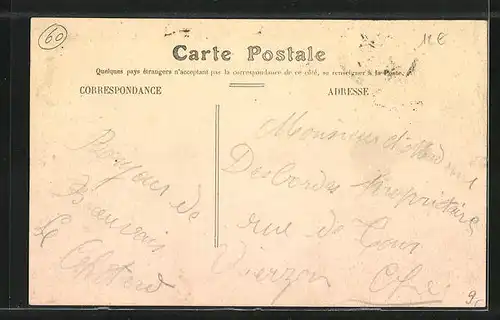 60
11€
Carte Postale
Quelques pays étrangers n'acceptant pas la correspondance de ce côté, se renseigner à la Poste.
CORRESPONDANCE
ADRESSE
Bonjour de
Beauvais
Monsieur
Desbordes Propriétaire
rue de
Vierzon Cher